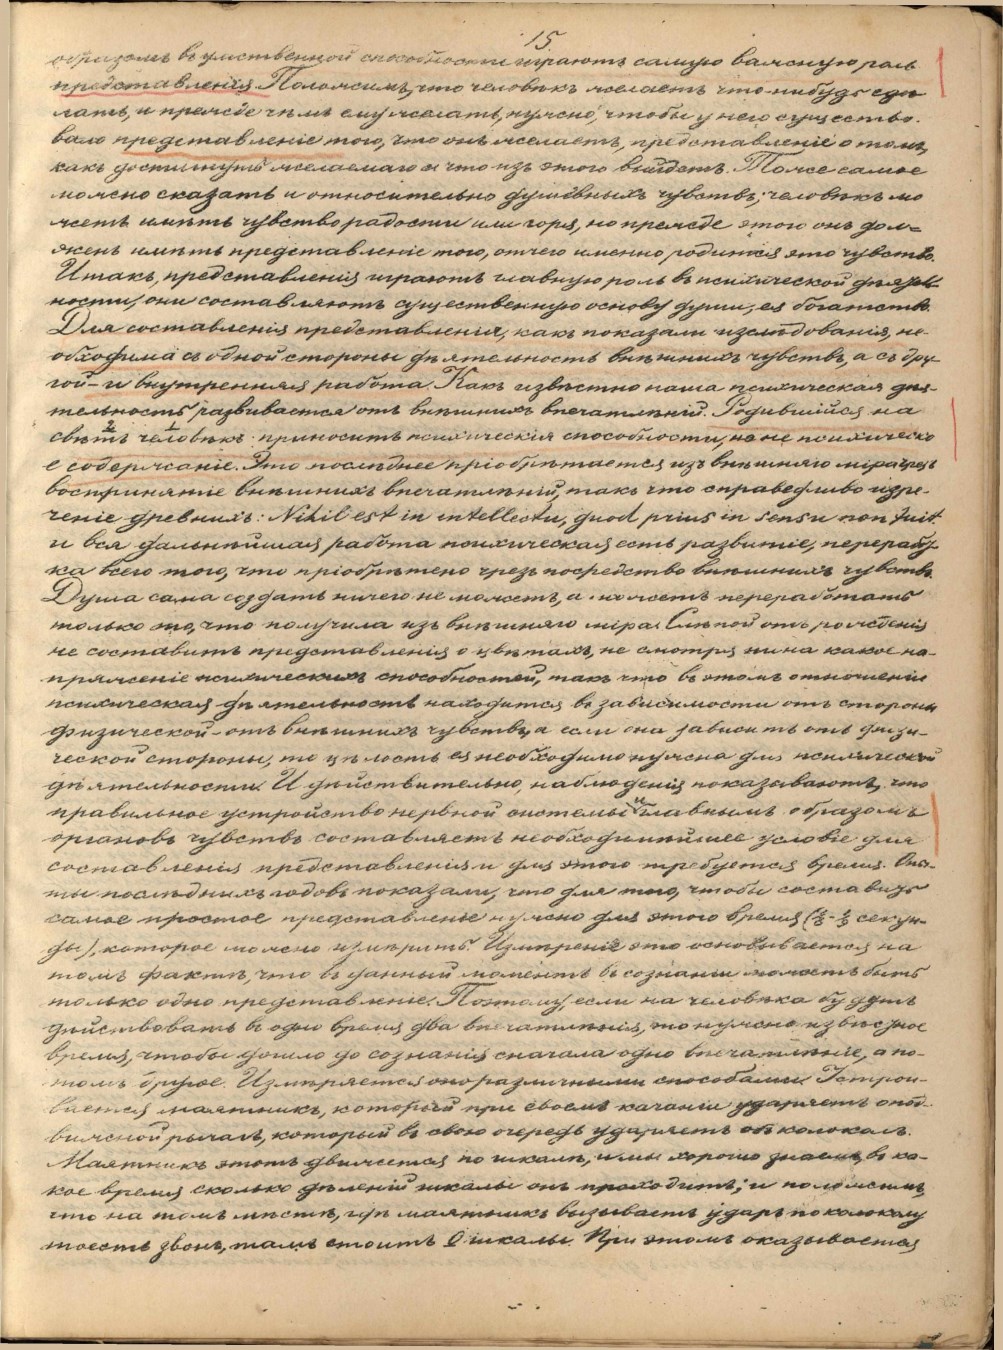 15
образомъ въ умственной способности играютъ самую важную роль
представленія. Положимъ, что человѣкъ желаетъ что-нибудь сдѣ
лать, и прежде чѣмъ ему желать, нужно, чтобы у него существо-
вало представленіе того, что онъ желаетъ, представленіе о томъ,
какъ достигнуть желаемаго и что изъ этого выйдетъ. Тоже самое
можно сказать и относительно душевныхъ чувствъ; человѣкъ мо
жетъ имѣть чувство радости или горя, но прежде этого онъ дол=
женъ имѣть представленіе того, отчего именно родится это чувство.
Итакъ, представленія играютъ главную роль въ психической дѣятель-
ности, они составляютъ существенную основу души, ея богатство.
Для составленія представленія, какъ показали изслѣдованія, не-
обходима съ одной стороны дѣятельность внѣшнихъ чувствъ, а съ дру-
гой – и внутренняя работа. Какъ извѣстно наша психическая дѣя-
тельность развивается отъ внѣшнихъ впечатлѣній. Родившійся на
свѣтъ человѣкъ приноситъ психическія способности, но не психическо
е содержаніе. Это послѣднее пріобрѣтается изъ внѣшняго міра чрезъ
воспринятіе внѣшнихъ впечатлѣній, такъ что справедливо изре-
ченіе древнихъ: Nihil est in intellectu, quod prius in sensu non fuit.
и вся дальнѣйшая работа психическая есть развитіе, переработ-
ка всего того, что пріобрѣтено чрезъ посредство внѣшнихъ чувствъ.
Душа сама создать ничего не можетъ, а можетъ переработать
только то, что получила изъ внѣшняго міра. Слѣпой отъ рожденія
не составитъ представленія о цвѣтахъ, не смотря ни на какое на-
пряженіе психическихъ способностей, такъ что въ этомъ отношеніи
психическая дѣятельность находится въ зависимости отъ стороны
физической – отъ внѣшнихъ чувствъ, а если она зависитъ отъ физи-
ческой стороны, то цѣлость ея необходимо нужна для психической
дѣятельности. И дѣйствительно, наблюденія показываютъ, что
правильное устройство нервной системы и главнымъ образомъ
органовъ чувствъ составляетъ необходимѣйшее условіе для
составленія представленія и для этого требуется время. Опы-
ты послѣднихъ годовъ показали, что для того, чтобы составить
самое простое представленіе нужно для этого время секун-
ды), которое можно измѣрить. Измѣреніе это основывается на
томъ фактѣ, что въ данный моментъ въ сознаніи можетъ быть
только одно представленіе. Поэтому, если на человѣка будутъ
дѣйствовать въ одно время два впечатлѣнія, то нужно извѣстное
время, чтобы дошло до сознанія сначала одно впечатлѣніе, а по-
томъ другое. Измѣряется оно различными способами. Устраи-
вается маятникъ, который при своемъ качаніи ударяетъ о под-
вижной рычагъ, который въ свою очередь ударяетъ объ колоколъ.
Маятникъ этотъ движется по шкалѣ, и мы хорошо знаемъ, въ ка-
кое время сколько дѣленій шкалы онъ проходитъ; и положимъ,
что на томъ мѣстѣ, гдѣ маятникъ вызываетъ ударъ по колоколу
тоесть звонъ, тамъ стоитъ 0 шкалы. При этомъ оказывается